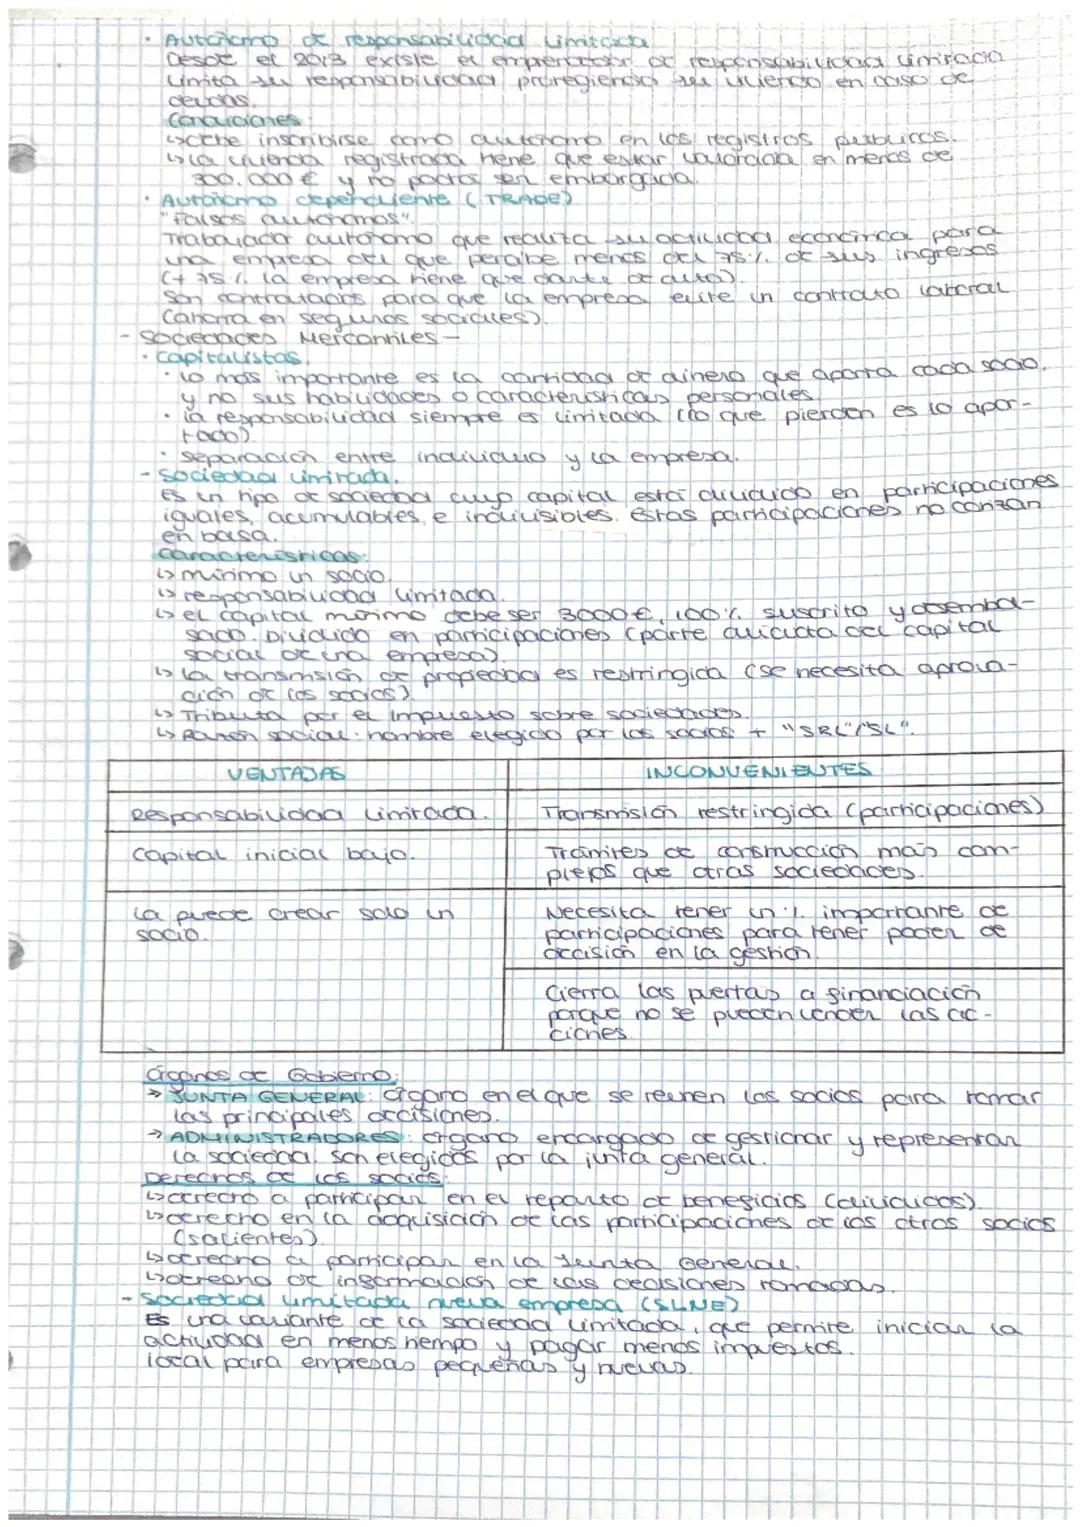 · Autónomo de responsabilidad limitada
Desde el 2013 existe el emprendedor de responsabilidad limitada
limita su responsabilidad, protegiendo su vivienda en caso de
deudas.
Condiciones:
↳ debe inscribirse como autónomo en los registros públicos.
↳ la vivienda registrada tiene que estar valorada en menos de
300.000€ y no podrá ser embargada.
· Autónomo dependiente (TRADE)
"Falsos autónomos".
Trabajador autónomo que realiza su actividad económica para
una empresa del que percibe menos del 75% de sus ingresos
(+75% la empresa tiene que darte de alta).
Son contratados para que la empresa evite un contrato laboral
(ahorra en seguros sociales).
- Sociedades Mercantiles -
· Capitalistas.
· lo más importante es la cantidad de dinero que aporta cada socio,
y no sus habilidades o características personales.
· la responsabilidad siempre es limitada (lo que pierden es lo apor-
tado).
· separación entre individuo y la empresa.
- Sociedad limitada.
Es un tipo de sociedad cuyo capital está dividido en participaciones
iguales, acumulables e indivisibles. Estas participaciones no cotizan
en bolsa.
Características:
↳ mínimo un socio.
↳ responsabilidad limitada.
↳ el capital mínimo debe ser 3000€, 100% suscrito y desembol-
sado. Dividido en participaciones (parte alícuota del capital
social de una empresa).
↳ la transmisión de propiedad es restringida (se necesita aproba-
ción de los socios)
↳ Tributa por el impuesto sobre sociedades.
↳ Razón social: nombre elegido por los socios + "SRL"/"SL".
VENTAJAS
INCONVENIENTES
Responsabilidad limitada.
Transmisión restringida (participaciones)
Capital inicial bajo.
Trámites de construcción más com-
plejos que otras sociedades.
La puede crear solo un
socio.
Necesita tener un % importante de
participaciones para tener poder de
decisión en la gestión.
Cierra las puertas a financiación
porque no se pueden vender las ac-
ciones.
Órganos de Gobierno:
→ JUNTA GENERAL: órgano en el que se reúnen los socios para tomar
las principales decisiones.
→ ADMINISTRADORES: órgano encargado de gestionar y representar
la sociedad. Son elegidos por la junta general.
Derechos de los socios:
↳ derecho a participar en el reparto de beneficios (dividendos).
↳ derecho en la adquisición de las participaciones de los otros socios
(salientes)
↳ derecho a participar en la Junta General.
↳ derecho de información de las decisiones tomadas.
- Sociedad limitada nueva empresa (SLNE)
Es una variante de la sociedad limitada, que permite iniciar la
actividad en menos tiempo y pagar menos impuestos.
ideal para empresas pequeñas y nuevas.